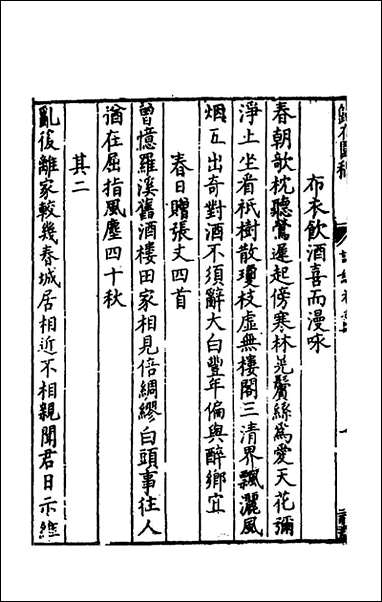 布衣飲酒喜而漫咏
春朝欹枕聽鶯遲起傍寒林晃鬢絲為愛天花彌
淨土坐看祇樹散瓊枝虛無樓閣三清界飄灑風
烟五出奇對酒不須辭大白豐年偏與醉鄉宜
春日贈張丈四首
曾憶羅溪舊酒樓田家相見倍綢繆白頭事往人
猶在屈指風塵四十秋
其二
亂後離家較幾春城居相近不相親聞君日示維